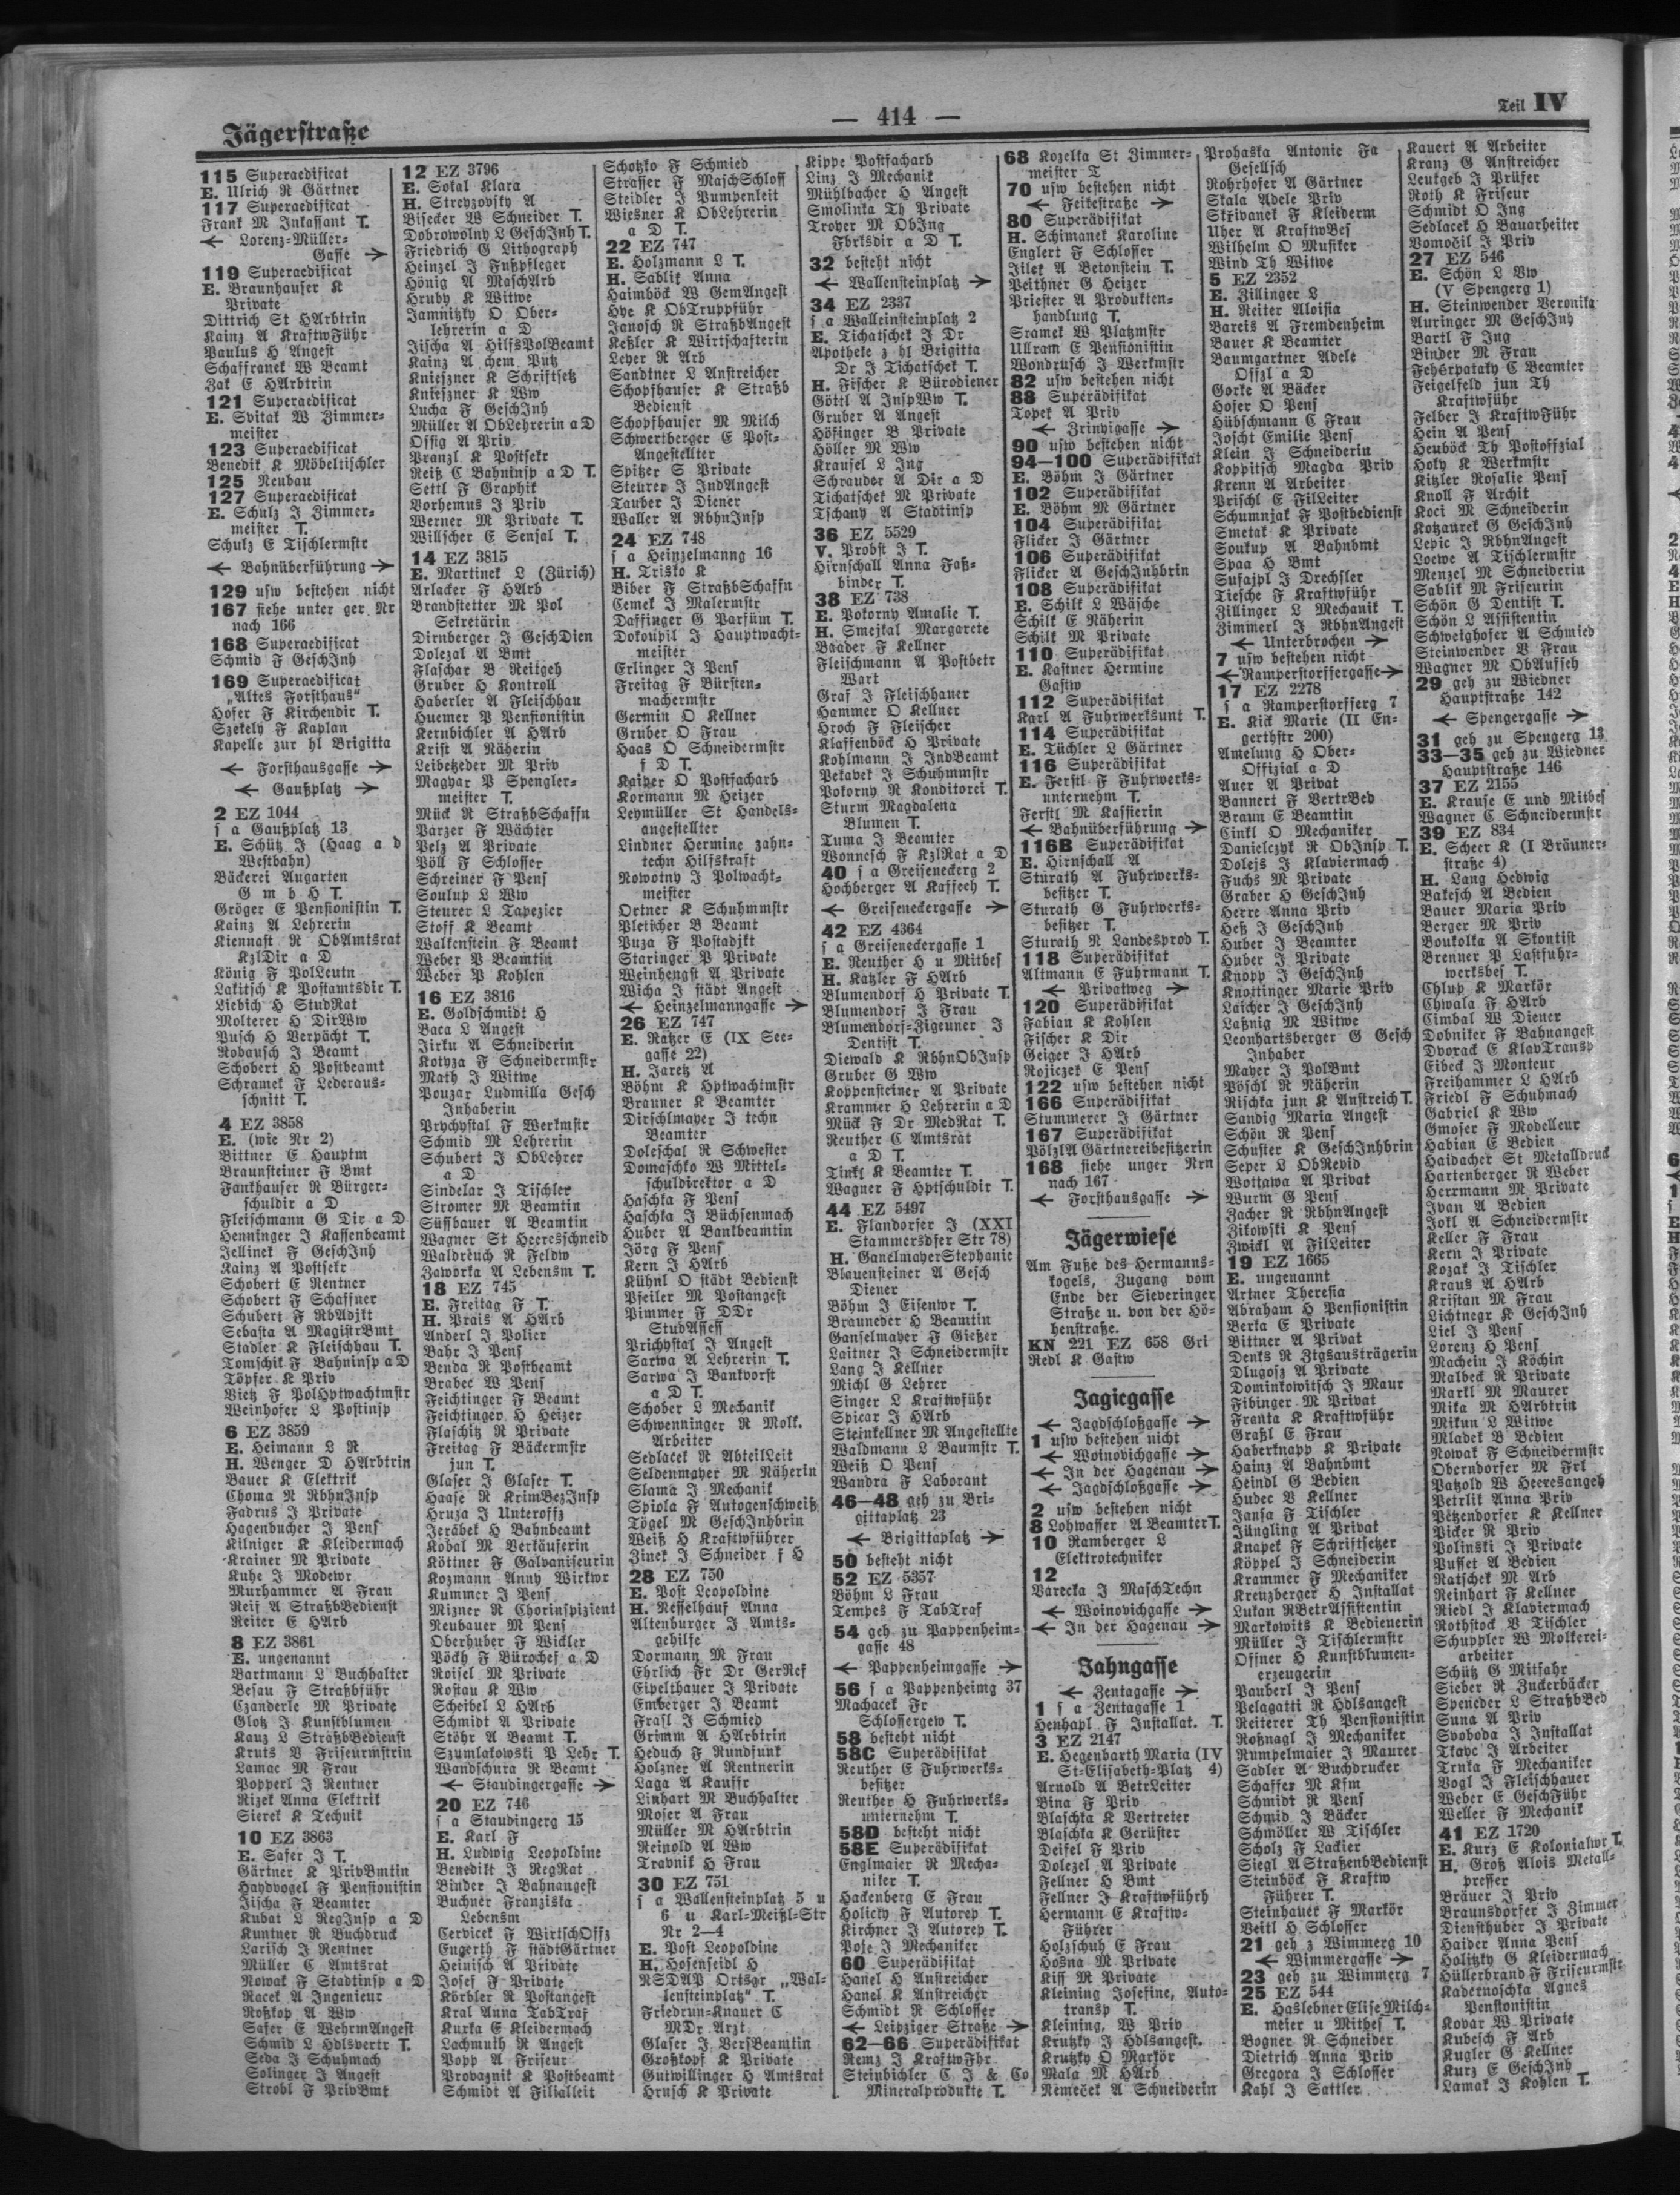 Jägerstraße
— 414 —
Teil IV
115 Superaedificat
E. Ulrich R Gärtner
117 Superaedificat
Frank M Inkassant T.
← Lorenz-Müller-
Gasse →
119 Superaedificat
E. Braunhauser K
Private
Dittrich St HArbtrin
Kainz A KraftwFühr
Paulus H Angest
Schaffranek W Beamt
Zak E HArbtrin
121 Superaedificat
E. Svitak W Zimmer-
meister
123 Superaedificat
Benedik K Möbeltischler
125 Neubau
127 Superaedificat
E. Schulz J Zimmer-
meister T.
Schulz E Tischlermstr
← Bahnüberführung →
129 usw bestehen nicht
167 siehe unter ger Nr
nach 166
168 Superaedificat
Schmid F GeschInh
169 Superaedificat
„Altes Forsthaus“
Hofer F Kirchendir T.
Szekely F Kaplan
Kapelle zur hl Brigitta
← Forsthausgasse →
← Gaußplatz →
2 EZ 1044
s a Gaußplatz 13
E. Schütz J (Haag a d
Westbahn)
Bäckerei Augarten
G m b H T.
Gröger E Pensionistin T.
Kainz A Lehrerin
Kiennast R ObAmtsrat
KzlDir a D
König F PolLeutn
Lakitsch K Postamtsdir T.
Liebich H StudRat
Molterer H DirWw
Pusch H Verpächt T.
Robausch J Beamt
Schobert H Postbeamt
Schramek F Lederaus-
schnitt T.
4 EZ 3858
E. (wie Nr 2)
Bittner E Hauptm
Braunsteiner F Bmt
Fankhauser R Bürger-
schuldir a D
Fleischmann G Dir a D
Henninger J Kassenbeamt
Jellinek F GeschInh
Kainz A Postsekr
Schobert E Rentner
Schobert F Schaffner
Schubert F RbAdjkt
Sebasta A MagistrBmt
Stadler K Fleischhau T.
Tomschik F Bahninsp a D
Töpfer K Priv
Vietz F PolHptwachtmstr
Weinhofer L Postinsp
6 EZ 3859
E. Heimann L R
H. Wenger D HArbtrin
Bauer K Elektrik
Choma R RbhnInsp
Fadrus J Private
Hagenbucher J Pens
Kilniger K Kleidermach
Krainer M Private
Kuhe J Modewr
Murhammer A Frau
Reif A StraßbBedienst
Reiter E HArb
8 EZ 3861
E. ungenannt
Bartmann L Buchhalter
Besau F Straßbführ
Czanderle M Private
Glotz J Kunstblumen
Kauz L StraßbBedienst
Kruts V Friseurmstrin
Lamac M Frau
Popperl J Rentner
Rizek Anna Elektrik
Sierek K Technik
10 EZ 3863
E. Safer J T.
Gärtner K PrivBmtin
Haydvogel F Pensionistin
Jischa F Beamter
Kubat L RegInsp a D
Kuntner R Buchdruck
Larisch J Rentner
Müller C Amtsrat
Nowak F Stadtinsp a D
Racek A Ingenieur
Roßkop A Ww
Safer E WehrmAngest
Schmid L Hdlsvertr T.
Seda J Schuhmach
Solinger J Angest
Strobl F PrivBmt
12 EZ 3796
E. Sokal Klara
H. Streyzovsky A
Bisecker W Schneider T.
Dobrowolny L GeschInh T.
Friedrich G Lithograph
Heinzel J Fußpfleger
Hönig A MaschArb
Hruby K Witwe
Jamnitzky O Ober-
lehrerin a D
Jischa A HilfsPolBeamt
Kainz A chem Putz
Knieszner K Schriftsetz
Knieszner K Ww
Lucha F GeschInh
Müller A ObLehrerin a D
Offig A Priv
Pranzl K Postsekr
Reiß C Bahninsp a D T.
Settl F Graphik
Vorhemus J Priv
Werner M Private T.
Willscher E Sensal T.
14 EZ 3815
E. Martinek L (Zürich)
Arlacker F HArb
Brandstetter M Pol
Sekretärin
Dirnberger J GeschDien
Dolezal A Bmt
Flaschar B Reitgeh
Gruber H Kontroll
Haberler A Fleischhau
Huemer P Pensionistin
Kernbichler A HArb
Krist A Näherin
Leibetzeder M Priv
Magyar P Spengler-
meister T.
Mück R StraßbSchaffn
Parzer F Wächter
Pelz A Private
Pöll F Schlosser
Schreiner F Pens
Soulup L Ww
Steurer L Tapezier
Stoff K Beamt
Walkenstein F Beamt
Weber P Beamtin
Weber P Kohlen
16 EZ 3816
E. Goldschmidt H
Baca L Angest
Jirku A Schneiderin
Kotyza F Schneidermstr
Math J Witwe
Pouzar Ludmilla Gesch
Inhaberin
Prychystal F Werkmstr
Schmid M Lehrerin
Schubert J ObLehrer
a D
Sindelar J Tischler
Stromer M Beamtin
Süssbauer A Beamtin
Wagner St Heeresschneid
Waldreuch R Feldw
Zaworka A Lebensm T.
18 EZ 745
E. Freitag F T.
H. Prais A HArb
Anderl J Polier
Bahr J Pens
Benda R Postbeamt
Brabec W Pens
Feichtinger F Beamt
Feichtinger H Heizer
Flaschitz R Private
Freitag F Bäckermstr
jun T.
Glaser J Glaser T.
Haase R KrimBezInsp
Hruza J Unteroffz
Jerábek H Bahnbeamt
Kobal M Verkäuferin
Köttner F Galvaniseurin
Kozmann Anny Wirkwr
Kummer J Pens
Mizner R Chorinspizient
Neubauer M Pens
Oberhuber F Wickler
Pöckh F Bürochef a D
Roisel M Private
Rostau K Ww
Scheibel L HArb
Schmidt A Private
Stöhr A Beamt T.
Szumlakowski P Lehr T.
Wandschura R Beamt
← Staudingergasse →
20 EZ 746
s a Staudingerg 15
E. Karl F
H. Ludwig Leopoldine
Benedikt J RegRat
Binder J Bahnangest
Buchner Franziska
Lebensm
Cervicek F WirtschOffz
Engerth F städtGärtner
Heinisch A Private
Josef F Private
Körbler R Postangest
Kral Anna TabTraf
Kurka E Kleidermach
Lachmuth R Angest
Popp A Friseur
Provaznik K Postbeamt
Schmidt A Filialleit
Schotzko F Schmied
Strasser F MaschSchloss
Steidler J Pumpenleit
Wiesner K ObLehrerin
a D T.
22 EZ 747
E. Holzmann L T.
H. Sablik Anna
Haimböck W GemAngest
Hye K ObTruppführ
Janosch R StraßbAngest
Keßler K Wirtschafterin
Leyer R Arb
Sandtner L Anstreicher
Schopfhauser K Straßb
Bedienst
Schopfhauser M Milch
Schwertberger E Post-
Angestellter
Spitzer S Private
Steurer J IndAngest
Tauber J Diener
Waller A RbhnInsp
24 EZ 748
s a Heinzelmanng 16
H. Trisko K
Biber F StraßbSchaffn
Cemek J Malermstr
Daffinger G Parfüm T.
Dokoupil J Hauptwacht-
meister
Erlinger J Pens
Freitag F Bürsten-
machermstr
Germin O Kellner
Gruber O Frau
Haas O Schneidermstr
f D T.
Kaiper O Postfacharb
Kormann M Heizer
Leymüller St Handels-
angestellter
Lindner Hermine zahn-
techn Hilfskraft
Nowotny J Polwacht-
meister
Ortner K Schuhmmstr
Pleticher B Beamt
Puza F Postadjkt
Staringer P Private
Weinhengst A Private
Wicha J städt Angest
← Heinzelmanngasse →
26 EZ 747
E. Ratzer E (IX See-
gasse 22)
H. Jaretz A
Böhm K Hptwachtmstr
Brauner K Beamter
Dirschlmayer J techn
Beamter
Doleschal R Schwester
Domaschko W Mittel-
schuldirektor a D
Haschka F Pens
Haschka J Büchsenmach
Huber A Bankbeamtin
Jörg F Pens
Kern J HArb
Kühnl O städt Bedienst
Pfeiler M Postangest
Pimmer F DDr
StudAssess
Prichystal J Angest
Sarwa A Lehrerin T.
Sarwa J Bankvorst
a D T.
Schober L Mechanik
Schwenninger R Molk.
Arbeiter
Sedlacek R AbteilLeit
Seldenmayer M Näherin
Slama J Mechanik
Spiola F Autogenschweiß
Tögel M GeschInhbrin
Weiß H Kraftwführer
Zinek J Schneider f H
28 EZ 750
E. Post Leopoldine
H. Nesselhauf Anna
Altenburger J Amts-
gehilfe
Dormann M Frau
Ehrlich Fr Dr GerRef
Eipelthauer J Private
Emberger J Beamt
Frasl J Schmied
Grimm A HArbtrin
Heduch F Rundfunk
Holzner A Rentnerin
Laga A Kauffr
Linhart M Buchhalter
Moser A Frau
Müller M HArbtrin
Reinold A Ww
Travnik H Frau
30 EZ 751
s a Wallensteinplatz 5 u
6 u Karl-Meißl-Str
Nr 2—4
E. Post Leopoldine
H. Hosenseidl H
NSDAP Ortsgr „Wal-
lensteinplatz“ T.
Friedrun-Knauer C
MDr Arzt
Glaser J VersBeamtin
Großkopf K Private
Gutwillinger H Amtsrat
Hrusch K Private
Kippe Postfacharb
Linz J Mechanik
Mühlbacher H Angest
Smolinka Th Private
Troyer M ObIng
Fbrksdir a D T.
32 besteht nicht
← Wallensteinplatz →
34 EZ 2337
s a Walleinsteinplatz 2
E. Tichatschek J Dr
Apotheke z hl Brigitta
Dr J Tichatschek T.
H. Fischer K Bürodiener
Göttl A InspWw T.
Gruber A Angest
Höfinger B Private
Höller M Ww
Krausel L Ing
Schrauder A Dir a D
Tichatschek M Private
Tschany A Stadtinsp
36 EZ 5529
V. Probst J T.
Hirnschall Anna Faß-
binder T.
38 EZ 738
E. Pokorny Amalie T.
H. Smejkal Margarete
Baader F Kellner
Fleischmann A Postbetr
Wart
Graf J Fleischhauer
Hammer O Kellner
Hroch F Fleischer
Klaffenböck H Private
Kohlmann J IndBeamt
Pekavek J Schuhmmstr
Pokorny R Konditorei T.
Sturm Magdalena
Blumen T.
Tuma J Beamter
Wonnesch F KzlRat a D
40 s a Greiseneckerg 2
Hochberger A Kaffeeh T.
← Greiseneckergasse →
42 EZ 4364
s a Greiseneckergasse 1
E. Reuther H u Mitbes
H. Katzler F HArb
Blumendorf H Private T.
Blumendorf J Frau
Blumendorf-Zigeuner J
Dentist T.
Diewald K RbhnObInsp
Gruber G Ww
Koppensteiner A Private
Krammer H Lehrerin a D
Mück F Dr MedRat T.
Reuther C Amtsrat
a D T.
Tinkl K Beamter T.
Wagner F Hptschuldir T.
44 EZ 5497
E. Flandorfer J (XXI
Stammersdfer Str 78)
H. GanelmayerStephanie
Blauensteiner A Gesch
Diener
Böhm J Eisenwr T.
Brauneder H Beamtin
Ganselmayer F Gießer
Laitner J Schneidermstr
Lang J Kellner
Michl G Lehrer
Singer L Kraftwführ
Spicar J HArb
Steinkellner M Angestellte
Waldmann L Baumstr T.
Weiß O Pens
Wandra F Laborant
46—48 geh zu Bri-
gittaplatz 23
← Brigittaplatz →
50 besteht nicht
52 EZ 5357
Böhm L Frau
Tempes F TabTraf
54 geh zu Pappenheim-
gasse 48
← Pappenheimgasse →
56 s a Pappenheimg 37
Machacek Fr
Schlossergew T.
58 besteht nicht
58C Superädifikat
Reuther E Fuhrwerks-
besitzer
Reuther H Fuhrwerks-
unternehm T.
58D besteht nicht
58E Superädifikat
Englmaier R Mecha-
niker T.
Hackenberg E Frau
Holicky F Autorep T.
Kirchner J Autorep T.
Pose J Mechaniker
60 Superädifikat
Hanel H Anstreicher
Hanel K Anstreicher
Schmidt R Schlosser
← Leipziger Straße →
62—66 Superädifikat
Remz J KraftwFhr
Steinbichler C J & Co
Mineralprodukte T.
68 Kozelka St Zimmer-
meister T
70 usw bestehen nicht
← Feikestraße →
80 Superädifikat
H. Schimanek Karoline
Englert F Schlosser
Jilek A Betonstein T.
Peithner G Heizer
Priester A Produkten-
handlung T.
Sramek W Platzmstr
Ullram E Pensionistin
Wondrusch J Werkmstr
82 usw bestehen nicht
88 Superädifikat
Topek A Priv
← Zrinyigasse →
90 usw bestehen nicht
94—100 Superädifikat
E. Böhm J Gärtner
102 Superädifikat
E. Böhm M Gärtner
104 Superädifikat
Flicker J Gärtner
106 Superädifikat
Flicker A GeschInhbrin
108 Superädifikat
E. Schilk L Wäsche
Schilk E Näherin
Schilk M Private
110 Superädifikat
E. Kastner Hermine
Gastw
112 Superädifikat
Karl A Fuhrwerksunt T.
114 Superädifikat
E. Tüchler L Gärtner
116 Superädifikat
E. Ferstl F Fuhrwerks-
unternehm T.
Ferstl M Kassierin
← Bahnüberführung →
116B Superädifikat
E. Hirnschall A
Sturath A Fuhrwerks-
besitzer T.
Sturath G Fuhrwerks-
besitzer T.
Sturath R Landesprod T.
118 Superädifikat
Altmann E Fuhrmann T.
← Privatweg →
120 Superädifikat
Fabian K Kohlen
Fischer K Dir
Geiger J HArb
Rojiczek E Pens
122 usw bestehen nicht
166 Superädifikat
Stummerer J Gärtner
167 Superädifikat
PölzlA Gärtnereibesitzerin
168 siehe unger Nrn
nach 167
← Forsthausgasse →
Jägerwiese
Am Fuße des Hermanns-
kogels, Zugang vom
Ende der Sieveringer
Straße u. von der Hö-
henstraße.
KN 221 EZ 658 Gri
Redl K Gastw
Jagicgasse
← Jagdschloßgasse →
1 usw bestehen nicht
← Woinovichgasse →
← In der Hagenau →
← Jagdschloßgasse →
2 usw bestehen nicht
8 Lohwasser A BeamterT.
10 Ramberger L
Elektrotechniker
12
Varecka J MaschTechn
← Woinovichgasse →
← In der Hagenau →
Jahngasse
← Zentagasse →
1 s a Zentagasse 1
Henhapl F Installat. T.
3 EZ 2147
E. Hegenbarth Maria (IV
St-Elisabeth-Platz 4)
Arnold A BetrLeiter
Bina F Priv
Blaschka K Vertreter
Blaschka K Gerüster
Deisel F Priv
Dolezel A Private
Fellner H Bmt
Fellner J Kraftwführh
Hermann E Kraftw-
Führer
Holzschuh E Frau
Hosna M Private
Kiss M Private
Kleining Josefine, Auto-
transp T.
Kleining, W Priv
Krutzky J Hdlsangest.
Krutzky O Markör
Mala M HArb
Němeček A Schneiderin
Prohaska Antonie Fa
Gesellsch
Rohrhofer A Gärtner
Skala Adele Priv
Skřivanek F Kleiderm
Uher A KraftwBes
Wilhelm O Musiker
Wind Th Witwe
5 EZ 2352
E. Zillinger L
H. Reiter Aloisia
Bareis A Fremdenheim
Bauer K Beamter
Baumgartner Adele
Offzl a D
Gorke A Bäcker
Hofer O Pens
Hübschmann C Frau
Joscht Emilie Pens
Klein J Schneiderin
Koppitsch Magda Priv
Krenn A Arbeiter
Prischl E FilLeiter
Schumnjak F Postbedienst
Smetak K Private
Soukup A Bahnbmt
Spaa H Bmt
Sufajpl J Drechsler
Tiesche F Kraftwführ
Zillinger L Mechanik T.
Zimmerl J RbhnAngest
← Unterbrochen →
7 usw bestehen nicht
←Ramperstorffergasse→
17 EZ 2278
s a Ramperstorfferg 7
E. Kick Marie (II En-
gerthstr 200)
Amelung H Ober-
Offizial a D
Auer A Privat
Bannert F VertrBed
Braun E Beamtin
Cinkl O Mechaniker
Danielczyk R ObInsp T.
Dolejs J Klaviermach
Fuchs M Private
Graber H GeschInh
Herre Anna Priv
Heß J GeschInh
Huber J Beamter
Huber J Private
Knopp J GeschInh
Knottinger Marie Priv
Laicher J GeschInh
Laßnig M Witwe
Leonhartsberger G Gesch
Inhaber
Mayer J PolBmt
Pöschl R Näherin
Rischka jun K Anstreich T.
Sandig Maria Angest
Schön R Pens
Schuster K GeschInhbrin
Seper L ObRevid
Wottawa A Privat
Wurm G Pens
Zacher R RbhnAngest
Zikowski K Pens
Zwickl A FilLeiter
19 EZ 1665
E. ungenannt
Artner Theresia
Abraham H Pensionistin
Berka E Private
Bittner A Privat
Denks R Ztgsausträgerin
Dlugosz A Private
Dominkowitsch J Maur
Fibinger M Privat
Franta K Kraftwführ
Graßl E Frau
Haberknapp K Private
Hainz A Bahnbmt
Heindl G Bedien
Hudec V Kellner
Jansa F Tischler
Jüngling A Privat
Knapek F Schriftsetzer
Köppel J Schneiderin
Krammer F Mechaniker
Kreuzberger H Installat
Lukan RBetrAssistentin
Markowits K Bedienerin
Müller J Tischlermstr
Offner H Kunstblumen-
erzeugerin
Pauberl J Pens
Pelagatti R Hdlsangest
Reiterer Th Pensionistin
Roßnagl J Mechaniker
Rumpelmaier J Maurer
Sadler A Buchdrucker
Schaffer M Kfm
Schmidt R Pens
Schmid J Bäcker
Schmöller W Tischler
Scholz F Lackier
Siegl A StraßenbBedienst
Steinböck F Kraftw
Führer T.
Steinhauer F Markör
Veitl H Schlosser
21 geh z Wimmerg 10
← Wimmergasse →
23 geh zu Wimmerg 7
25 EZ 544
E. Haslebner Elise Milch-
meier u Mitbes T.
Bogner R Schneider
Dietrich Anna Priv
Gregora J Schlosser
Kahl J Sattler
Kauert A Arbeiter
Kranz G Anstreicher
Leutgeb J Prüfer
Roth K Friseur
Schmidt O Ing
Sedlacek H Bauarbeiter
Vomočil J Priv
27 EZ 546
E. Schön L Vw
(V Spengerg 1)
H. Steinwender Veronika
Auringer M GeschInh
Bartl F Ing
Binder M Frau
Fehérpataky C Beamter
Feigelfeld jun Th
Kraftwführ
Felber J KraftwFühr
Hein A Pens
Heuböck Th Postoffzial
Holy K Werkmstr
Kitzler Rosalie Pens
Knoll F Archit
Koci M Schneiderin
Kotzaurek G GeschInh
Lepic J RbhnAngest
Loewe A Tischlermstr
Menzel M Schneiderin
Sablik M Friseurin
Schön G Dentist T.
Schön L Assistentin
Schweighofer A Schmied
Steinwender V Frau
Wagner M ObAufseh
29 geh zu Wiedner
Hauptstraße 142
← Spengergasse →
31 geh zu Spengerg 13
33—35 geh zu Wiedner
Hauptstraße 146
37 EZ 2155
E. Krause E und Mitbes
Wagner C Schneidermstr
39 EZ 834
E. Scheer K (I Bräuner-
straße 4)
H. Lang Hedwig
Bakesch A Bedien
Bauer Maria Priv
Berger M Priv
Boukolka A Skontist
Brenner P Lastfuhr-
werksbes T.
Chlup K Markör
Chwala F HArb
Cimbal W Diener
Dobniker F Bahnangest
Dvorack E KlavTransp
Eibeck J Monteur
Freihammer L HArb
Friedl F Schuhmach
Gabriel K Ww
Gmoser F Modelleur
Habian E Bedien
Haidacher St Metalldruck
Harienberger R Weber
Herrmann M Private
Ivan A Bedien
Jokl A Schneidermstr
Keller F Frau
Kern J Private
Kozak J Tischler
Kraus A HArb
Kristan M Frau
Lichtnegr K GeschInh
Liel J Pens
Lorenz H Pens
Machein J Köchin
Malbeck R Private
Markl M Maurer
Mika M HArbtrin
Mikun L Witwe
Mladek B Bedien
Nowak F Schneidermstr
Oberndorfer M Frl
Patzold W Heeresangeh
Petrlik Anna Priv
Petzendorfer K Kellner
Picker R Priv
Polinski J Private
Pusset A Bedien
Ratschek M Arb
Reinhart F Kellner
Riedl J Klaviermach
Rothstock V Tischler
Schuppler W Molkerei-
arbeiter
Schütz G Mitfahr
Sieber R Zuckerbäcker
Speneder L StraßbBed
Suna A Priv
Svoboda J Installat
Tkavc J Arbeiter
Trnka F Mechaniker
Vogl J Fleischhauer
Weber E GeschFühr
Weller F Mechanik
41 EZ 1720
E. Kurz E Kolonialwr T.
H. Groß Alois Metall-
presser
Bräuer J Priv
Braunsdorfer J Zimmer
Diensthuber J Private
Haider Anna Pens
Halitzky G Kleidermach
Hüllerbrand F Friseurmstr
Kadernoschka Agnes
Pensionistin
Kovar W Private
Kubesch F Arb
Kugler G Kellner
Kurz E GeschInh
Lamak J Kohlen T.